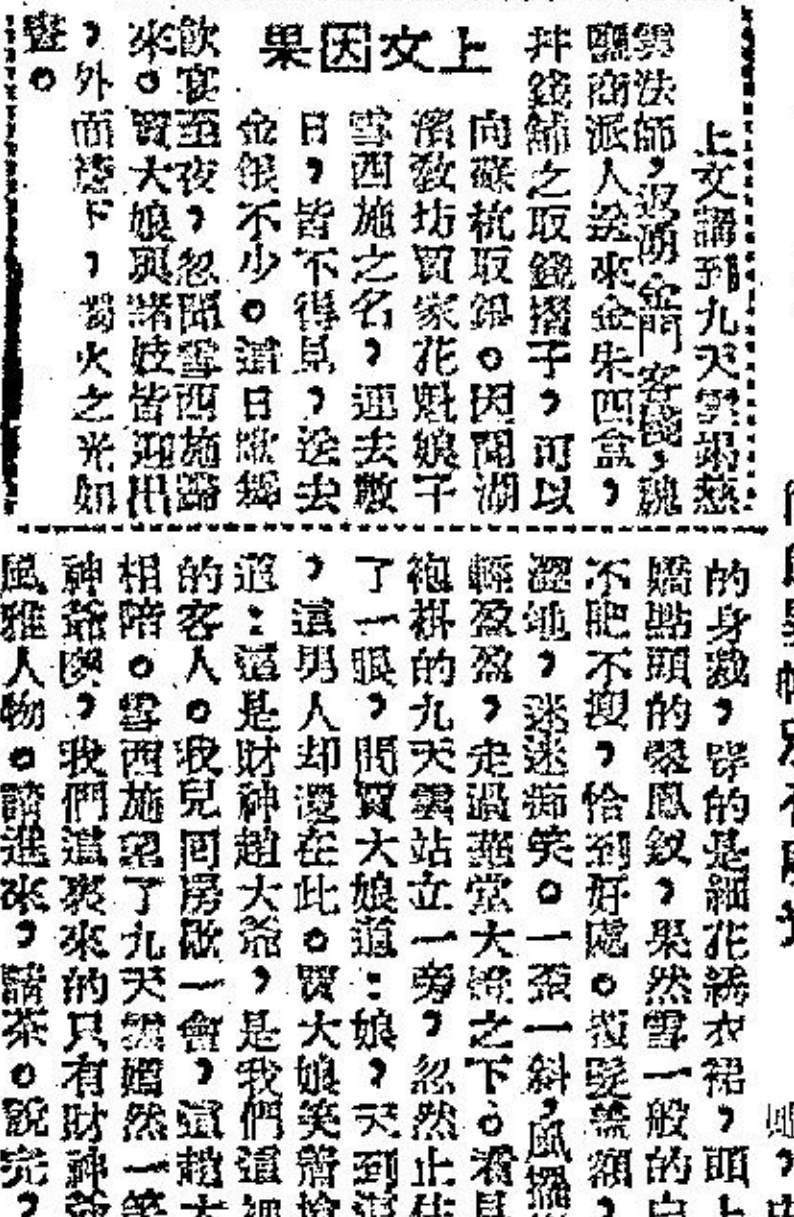 上文因果
上文講到九天雲竭慈
雲法師，返湖金門客棧，魏
鹽商派人送來金朱四盒，
幷錢舖之取錢摺子，可以
向蘇杭取銀。因聞湖
濱敎坊賈家花魁娘子
雪西施之名，連去數
日，皆不得見，送去
金銀不少。這日歌
飲宴至夜，忽聞雪西施歸
來。賈大娘與諸妓皆迎出
，外面樓下，燭火之光如
晝。
的身裁，穿的是細花綉衣裙，頭上
嬌點頭的翠鳳釵，果然雪一般的白
不肥不瘦，恰到好處。覆髮齊額，
澀地，迷迷痴笑。一歪一斜，風擺
輕盈盈，走過華堂大燈之下。看見
袍褂的九天雲站立一旁，忽然止住
了一眼，問賈大娘道：娘，天到這
，這男人却還在此。賈大娘笑着搶
道：這是財神趙大爺，是我們這裡
的客人。我兒回房歇一會，這趙大
相陪。雪西施望了九天雲嫣然一笑
神爺喫，我們這裏來的只有財神爺
風雅人物。請進來，請茶。說完，